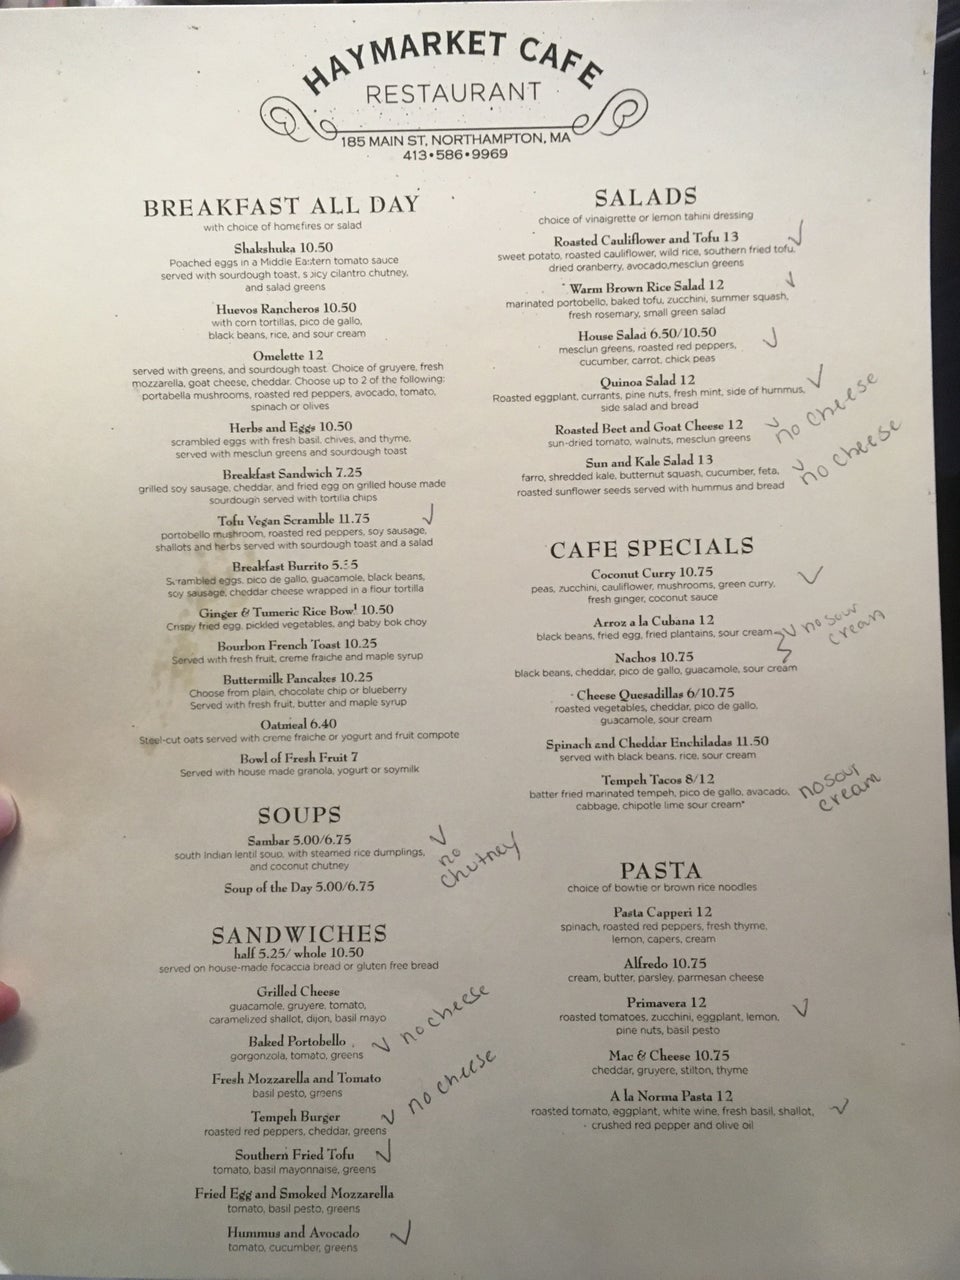 HAYMARKET CAFE
RESTAURANT
185 MAIN ST, NORTHAMPTON, MA
413•586•9969
BREAKFAST ALL DAY
with choice of homefires or salad
Shakshuka 10.50
Poached eggs in a Middle Eastern tomato sauce
served with sourdough toast, spicy cilantro chutney,
and salad greens
Huevos Rancheros 10.50
with corn tortillas, pico de gallo,
black beans, rice, and sour cream
Omelette 12
served with greens, and sourdough toast. Choice of gruyere, fresh
mozzarella, goat cheese, cheddar. Choose up to 2 of the following:
portabella mushrooms, roasted red peppers, avocado, tomato,
spinach or olives
Herbs and Eggs 10.50
scrambled eggs with fresh basil, chives, and thyme,
served with mesclun greens and sourdough toast
Breakfast Sandwich 7.25
grilled soy sausage, cheddar, and fried egg on grilled house made
sourdough served with tortilla chips
Tofu Vegan Scramble 11.75
portobello mushroom, roasted red peppers, soy sausage,
shallots and herbs served with sourdough toast and a salad
Breakfast Burrito
Scrambled eggs, pico de gallo, guacamole, black beans,
soy sausage, cheddar cheese wrapped in a flour tortilla
Ginger & Tumeric Rice Bowl 10.50
Crispy fried egg, pickled vegetables, and baby bok choy
Bourbon French Toast 10.25
Served with fresh fruit, creme fraiche and maple syrup
Buttermilk Pancakes 10.25
Choose from plain, chocolate chip or blueberry
Served with fresh fruit, butter and maple syrup
Oatmeal 6.40
Steel-cut oats served with creme fraiche or yogurt and fruit compote
Bowl of Fresh Fruit 7
Served with house made granola, yogurt or soymilk
SOUPS
Sambar 5.00/6.75
south Indian lentil soup, with steamed rice dumplings,
and coconut chutney
no
chutney
Soup of the Day 5.00/6.75
SANDWICHES
half 5.25/ whole 10.50
served on house-made focaccia bread or gluten free bread
Grilled Cheese
guacamole, gruyere, tomato,
caramelized shallot, dijon, basil mayo
Baked Portobello
gorgonzola, tomato, greens
no cheese
Fresh Mozzarella and Tomato
basil pesto, greens
Tempeh Burger
roasted red peppers, cheddar, greens
no cheese
Southern Fried Tofu
tomato, basil mayonnaise, greens
Fried Egg and Smoked Mozzarella
tomato, basil pesto, greens
Hummus and Avocado
tomato, cucumber, greens
SALADS
choice of vinaigrette or lemon tahini dressing
Roasted Cauliflower and Tofu 13
sweet potato, roasted cauliflower, wild rice, southern fried tofu,
dried cranberry, avocado,mesclun greens
Warm Brown Rice Salad 12
marinated portobello, baked tofu, zucchini, summer squash,
fresh rosemary, small green salad
House Salad 6.50/10.50
mesclun greens, roasted red peppers,
cucumber, carrot, chick peas
Quinoa Salad 12
Roasted eggplant, currants, pine nuts, fresh mint, side of hummus,
side salad and bread
Roasted Beet and Goat Cheese 12
sun-dried tomato, walnuts, mesclun greens
no cheese
Sun and Kale Salad 13
farro, shredded kale, butternut squash, cucumber, feta,
roasted sunflower seeds served with hummus and bread
no cheese
CAFE SPECIALS
Coconut Curry 10.75
peas, zucchini, cauliflower, mushrooms, green curry,
fresh ginger, coconut sauce
Arroz a la Cubana 12
black beans, fried egg, fried plantains, sour cream
no sour
cream
Nachos 10.75
black beans, cheddar, pico de gallo, guacamole, sour cream
Cheese Quesadillas 6/10.75
roasted vegetables, cheddar, pico de gallo,
guacamole, sour cream
Spinach and Cheddar Enchiladas 11.50
served with black beans, rice, sour cream
Tempeh Tacos 8/12
batter fried marinated tempeh, pico de gallo, avacado,
cabbage, chipotle lime sour cream*
no sour
cream
PASTA
choice of bowtie or brown rice noodles
Pasta Capperi 12
spinach, roasted red peppers, fresh thyme,
lemon, capers, cream
Alfredo 10.75
cream, butter, parsley, parmesan cheese
Primavera 12
roasted tomatoes, zucchini, eggplant, lemon,
pine nuts, basil pesto
Mac & Cheese 10.75
cheddar, gruyere, stilton, thyme
A la Norma Pasta 12
roasted tomato, eggplant, white wine, fresh basil, shallot,
crushed red pepper and olive oil